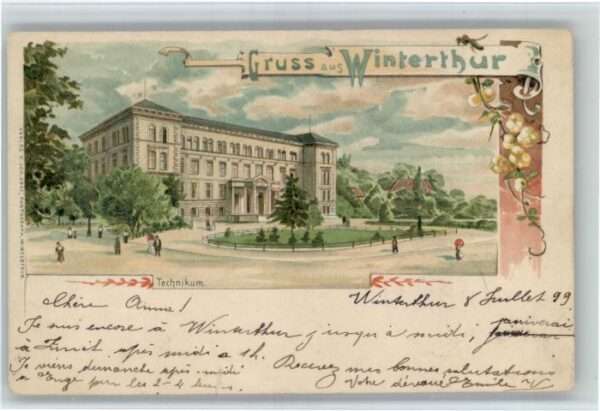 Gruss aus Winterthur
Technikum.
Winterthur 8 Juillet 99
Chère Anna!
Je suis encore à Winterthur jusqu'à midi, j'arriverai
à Zurich après midi a 1h.
Je viens dimanche après-midi
à Enge par les 2-4 heures.
Recevez mes bonnes salutations
Votre dévoué Emile V.